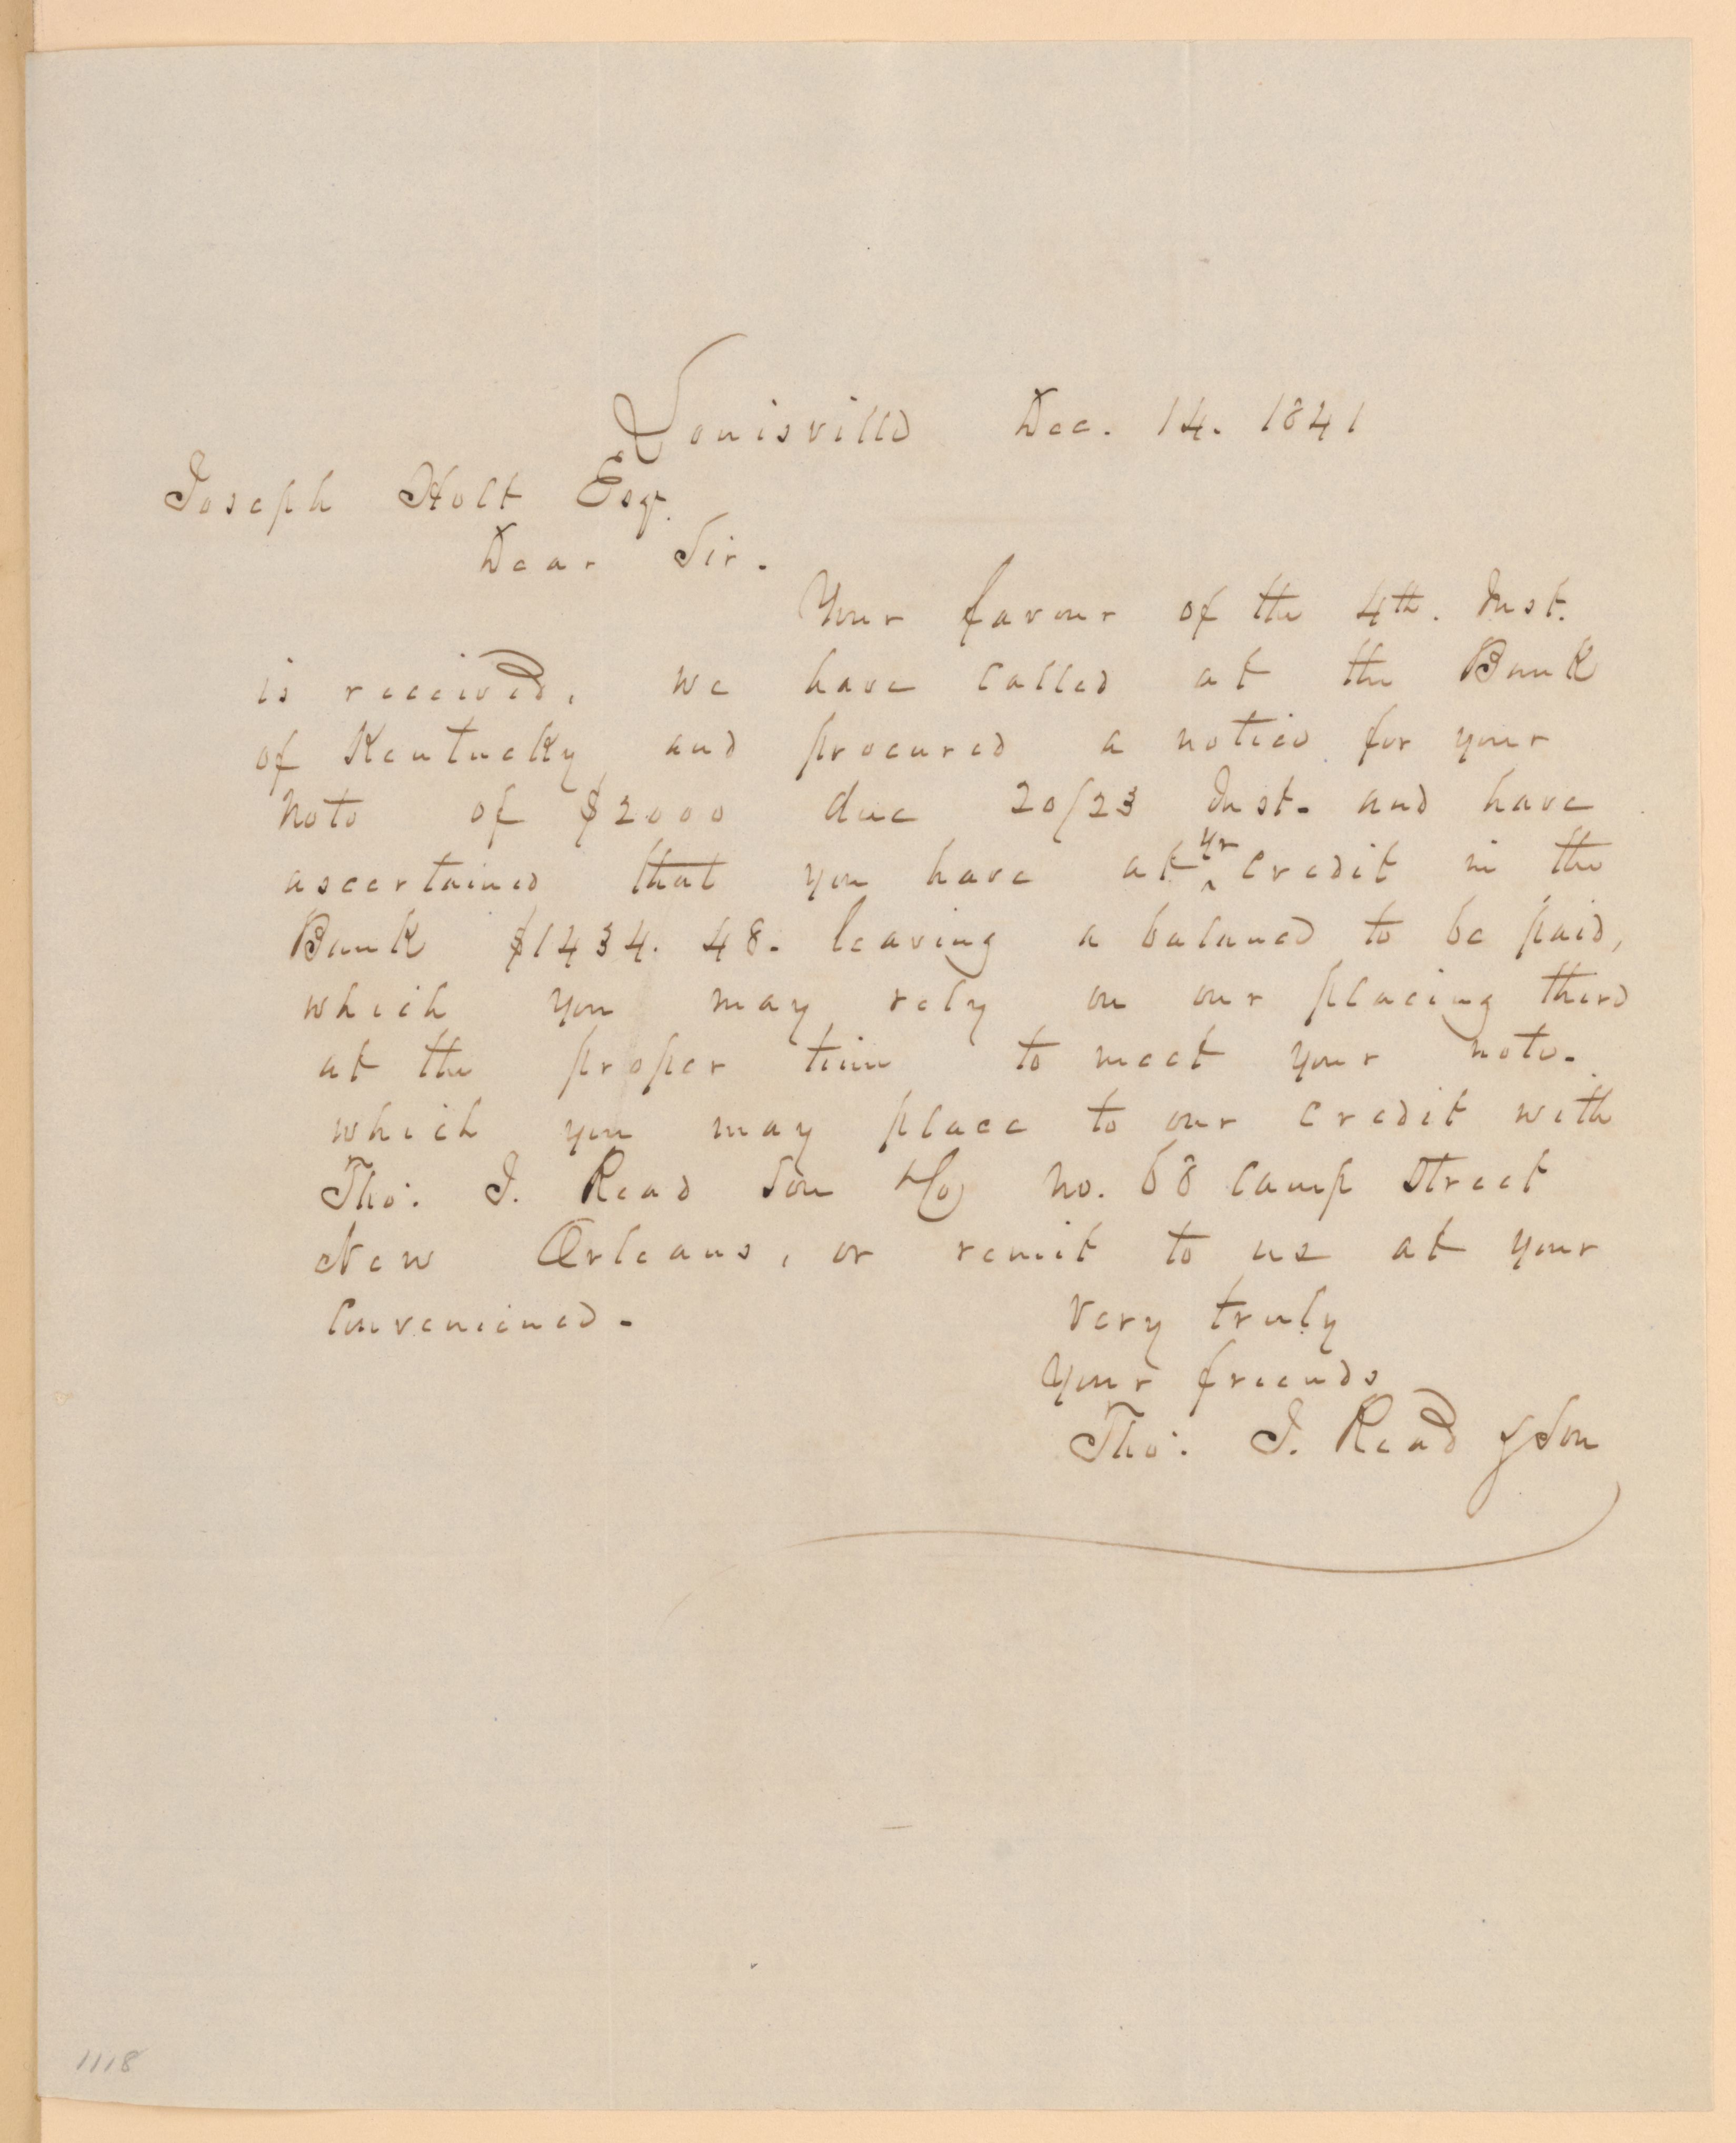 Louisville Dec. 14. 1841
Joseph Holt Esqr.
Dear Sir.
Your favour of the 4th. Inst.
is received, we have called at the Bank
of Kentucky and procured a notice for your
note of $2000 due 20/23 Inst. and have
ascertained that you have at yr credit in the
Bank $1434. 48. leaving a balance to be paid,
which you may rely on our placing there
at the proper time to meet your note.
which you may place to our credit with
Tho: J. Read Son & Co No. 68 Camp Street
New Orleans, or remit to us at your
Convenience.
Very truly
Your friends
Tho: J. Read & Son
1118